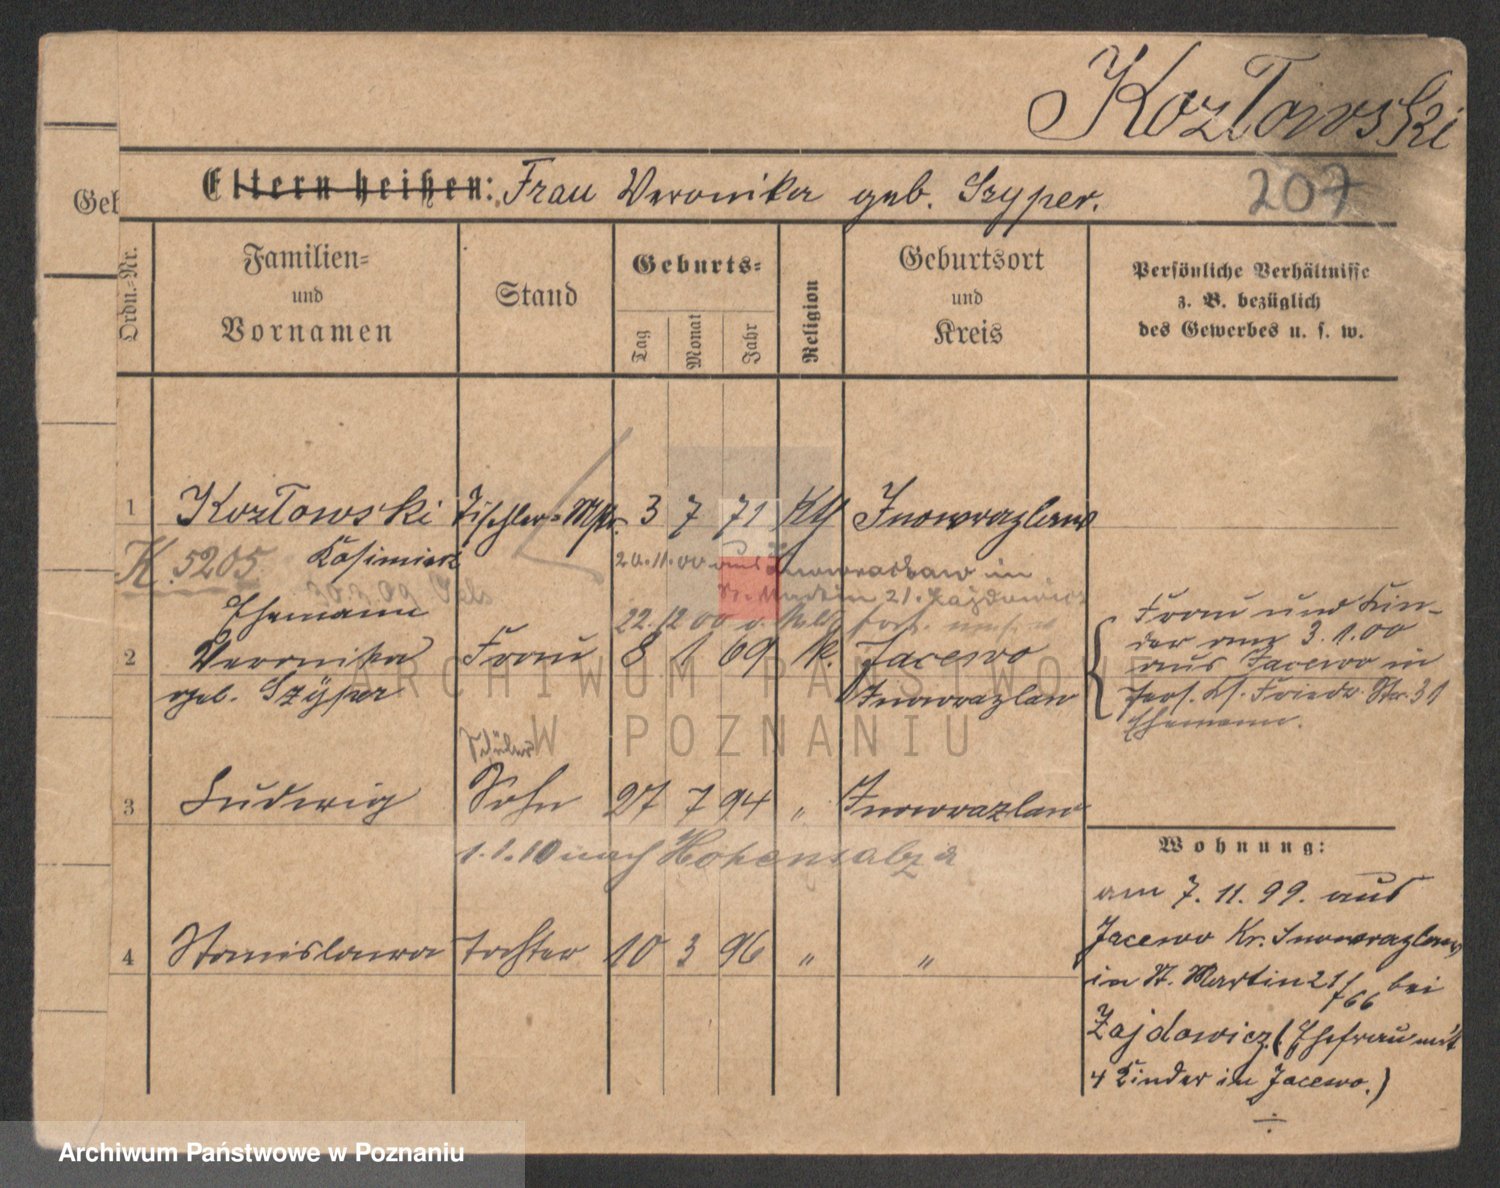 Kozłowski
Eltern heißen: Frau Veronika geb. Szyper.
207
Geb
Ordn.-Nr.
Familien-
und
Vornamen
Stand
Geburts-
Tag
Monat
Jahr
Religion
Geburtsort
und
Kreis
Persönliche Verhältnisse
z. B. bezüglich
des Gewerbes u. s. w.
1 Kozłowski Tischler-Mstr. 3 7 71 Kth Inowrazlaw
K. 5205 Kasimier
20.11.00 aus Inowraclaw in
St. Martin 21. Zajdowicz
Ehemann
22.12.00
2 Veronika Frau 8 1 69 K. Jacewo
geb. Szÿper Inowrazlaw
Frau und Kin-
der am 3.1.00
aus Jacewo in
Friedr. Str. 31
Ehemann.
Schüler
3 Ludwig Sohn 27 7 94 " Inowrazlaw
1.1.10 nach Hohensalza
4 Stanislawa Tochter 10 3 96 " "
Wohnung:
am 7. 11. 99. aus
Jacewo Kr. Inowrazlaw
in St. Martin 21/ f66 bei
Zajdowicz. (Ehefrau mit
4 Kinder in Jacewo.)
ARCHIWUM PAŃSTWOWE
W POZNANIU
Archiwum Państwowe w Poznaniu